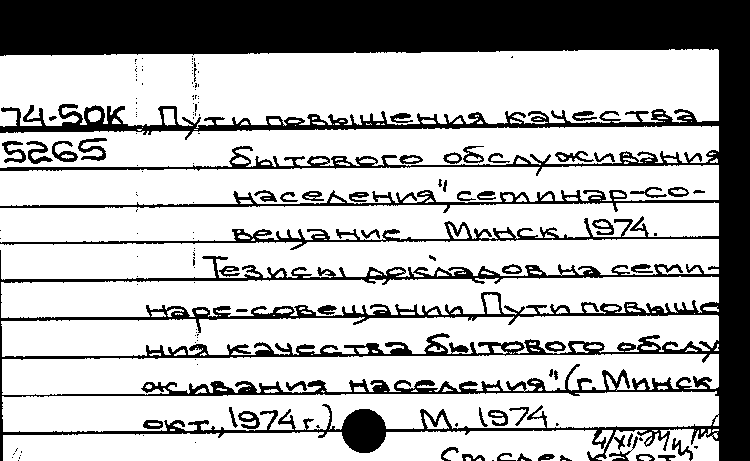 74-50К „Пути повышения качества
5265 бытового обслуживания
населения", семинар-со-
вещание. Минск. 1974.
Тезисы докладов на семи-
наре-совещании „Пути повыше
ния качества бытового обслу
живания населения". (г. Минск,
окт., 1974 г.) М., 1974.
См. след. карт.